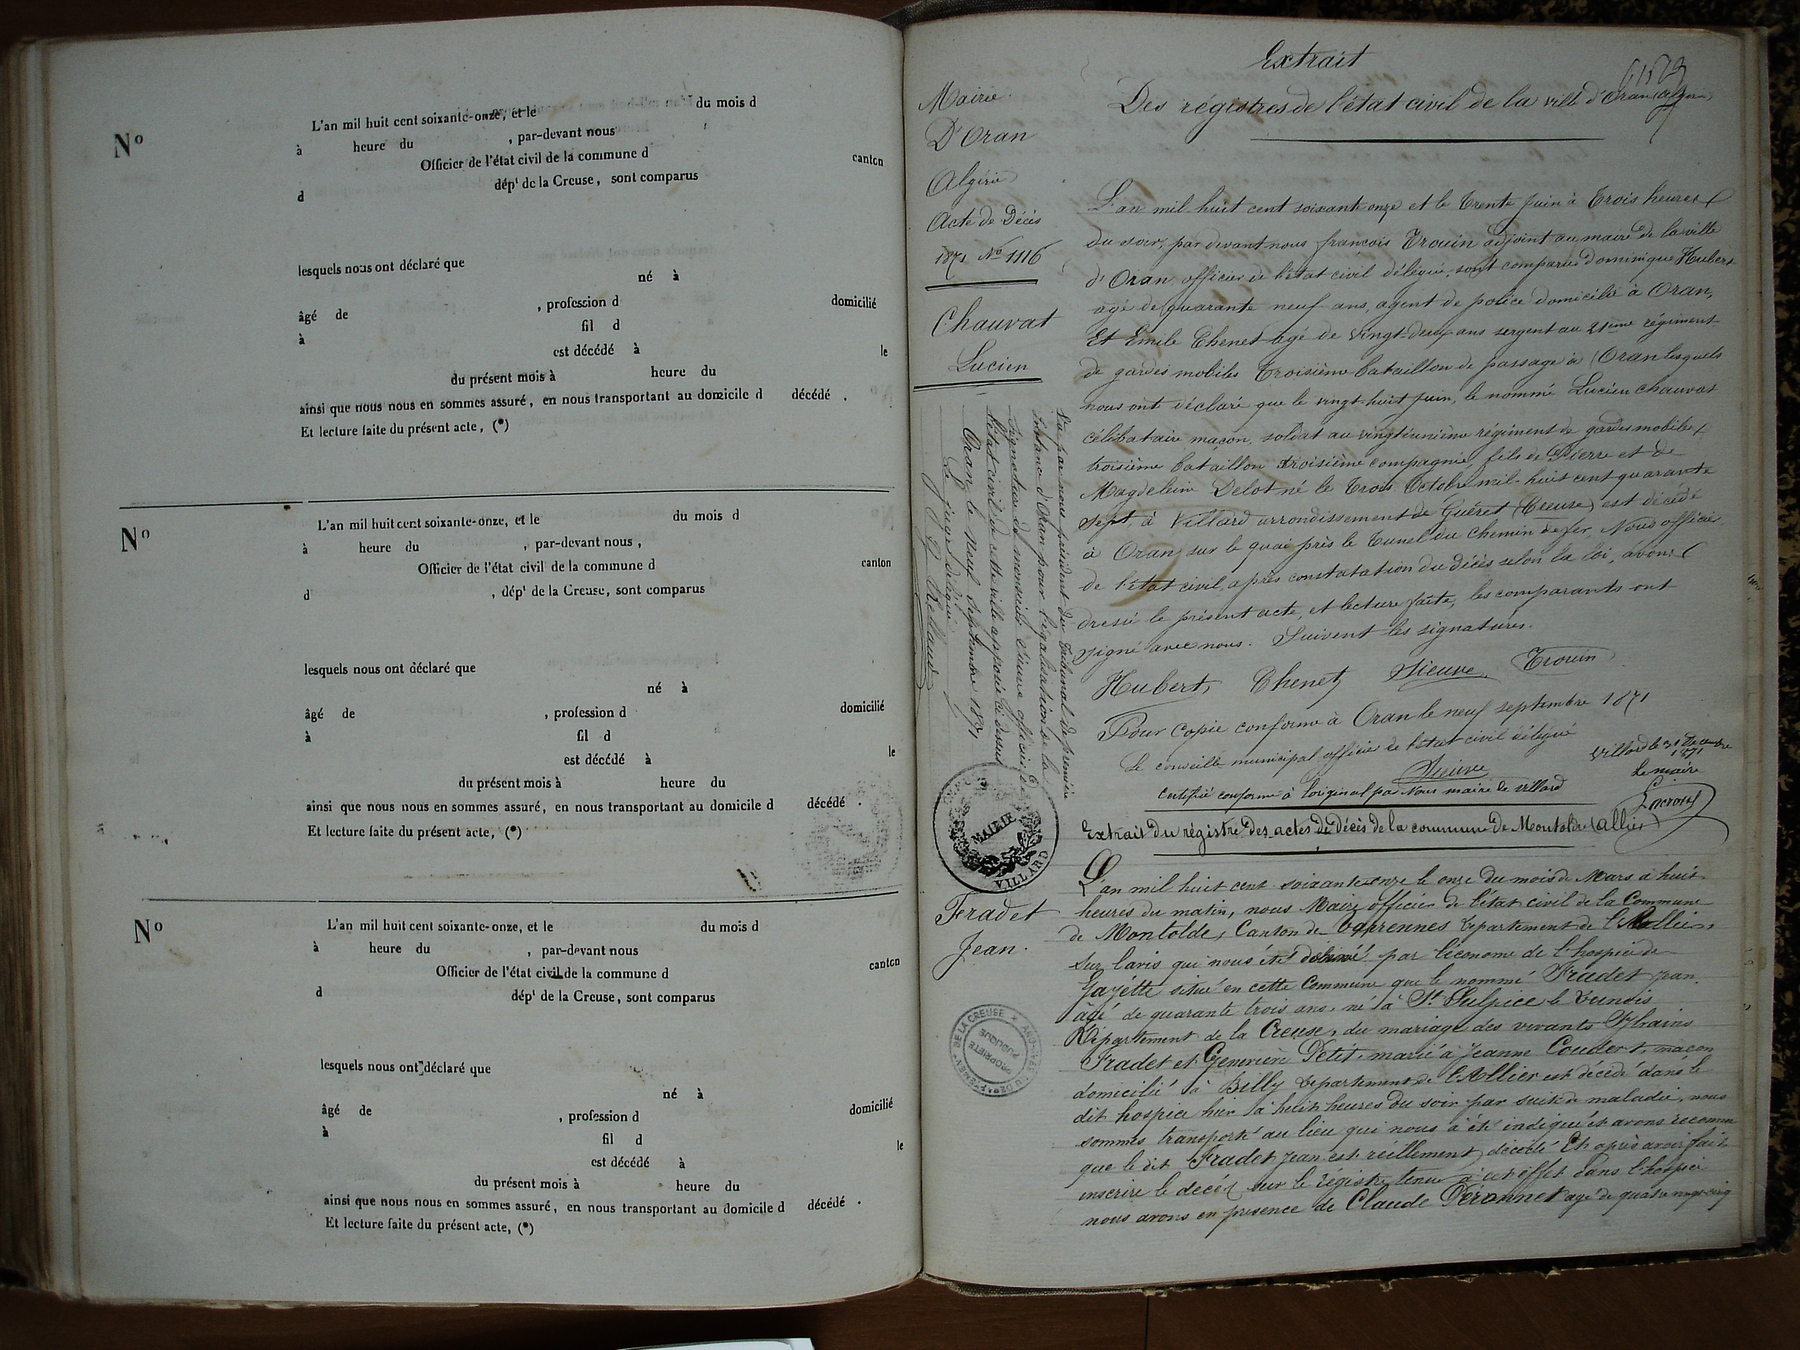 L'an mil huit cent soixante-onze, et le du mois d
Nº à heure du , par-devant nous
Officier de l'état civil de la commune d canton
d dépt de la Creuse, sont comparus
lesquels nous ont déclaré que
né à
âgé de , profession d domicilié
à fil d
est décédé à le
du présent mois à heure du
ainsi que nous nous en sommes assuré, en nous transportant au domicile d décédé .
Et lecture faite du présent acte, (*)
L'an mil huit cent soixante-onze, et le du mois d
Nº à heure du , par-devant nous ,
Officier de l'état civil de la commune d canton
d , dépt de la Creuse, sont comparus
lesquels nous ont déclaré que
né à
âgé de , profession d domicilié
à fil d
est décédé à le
du présent mois à heure du
ainsi que nous nous en sommes assuré, en nous transportant au domicile d décédé .
Et lecture faite du présent acte, (*)
L'an mil huit cent soixante-onze, et le du mois d
Nº à heure du , par-devant nous
Officier de l'état civil de la commune d canton
d dépt de la Creuse, sont comparus
lesquels nous ont déclaré que
né à
âgé de , profession d domicilié
à fil d
est décédé à le
du présent mois à heure du
ainsi que nous nous en sommes assuré, en nous transportant au domicile d décédé .
Et lecture faite du présent acte, (*)
Extrait
Des régistres de l'état civil de la ville d'Oran
Mairie
D'Oran
Algérie
Acte de Décès
1871 Nº 1116
Chauvat
Lucien
L'an mil huit cent soixante onze et le Trente Juin à Trois heures
du soir, par devant nous françois Trouin adjoint au maire de la ville
d'Oran officier de l'état civil délégué, sont comparus Dominique Hubert
agé de quarante neuf ans, agent de police domicilié à Oran,
Et Emile Thenet agé de vingt-deux ans sergent au 21ème régiment
de gardes mobiles Troisième bataillon de passage à Oran lesquels
nous ont déclaré que le vingt huit Juin, le nommé Lucien Chauvat
célibataire maçon, soldat au vingtéunième régiment de gardes mobiles
troisième bataillon troisième compagnie, fils de Pierre et de
Magdelein Delot né le Trois Octobre mil-huit cent quarante
sept à Villard arrondissement de Guéret (Creuse) est décédé
à Oran, sur le quai près le Tunel du Chemin de fer, Nous officier
de l'état civil, après constatation du décès selon la loi, avons
dressé le présent acte, et lecture faite, les comparants ont
signé avec nous. Suivent les signatures.
Hubert, Thenet, Sieuve, Trouin
Pour Copie conforme à Oran le neuf septembre 1871
Le conseillé municipal officier de l'état civil délégué
Sieuve
Vu par nous président du Tribunal de première
instance d'Oran pour légalisation de la
signature de monsieur Sieuve officier de
l'état civil de cette ville apposée ci dessus
Oran le neuf septembre 1871
Le juge délégué
Villard le 31 Décembre
1871
Le maire
certifié conforme à l'original par Nous maire de villard
Lacroix
MAIRIE
VILLARD
Extrait Du régistre Des actes de Décès de la commune De Montoldre (allier)
Fradet
Jean.
L'an mil huit cent soixante onze le onze du mois de Mars à huit
heures du matin, nous Maire officier de l'état civil de la Commune
de Montolde, Canton de Varennes département de l'Allier,
sur l'avis qui nous été donné par l'économe de l'hospice de
Gayette situé en cette Commune que le nommé Fradet Jean.
âgé de quarante trois ans, né à St Sulpice le Dunois
Département de la Creuse, du mariage des vivants
Fradet et Geneviève Petit, marié à Jeanne Coudert, maçon
domicilié à Billy département de l'Allier est décédé dans le
dit hospice hier à huit heures du soir par suite de maladie, nous
sommes transporté au lieu qui nous a été indiqué et avons reconnu
que le dit Fradet Jean est réellement décédé Et après avoir fait
inscrire le décès sur le régistre tenu à cet effet dans l'hospice
nous avons en présence de Claude Peronnet agé de quatre vingt cinq
ARCHIVES DU DÉPARTEMENT DE LA CREUSE
PROPRIÉTÉ
PUBLIQUE